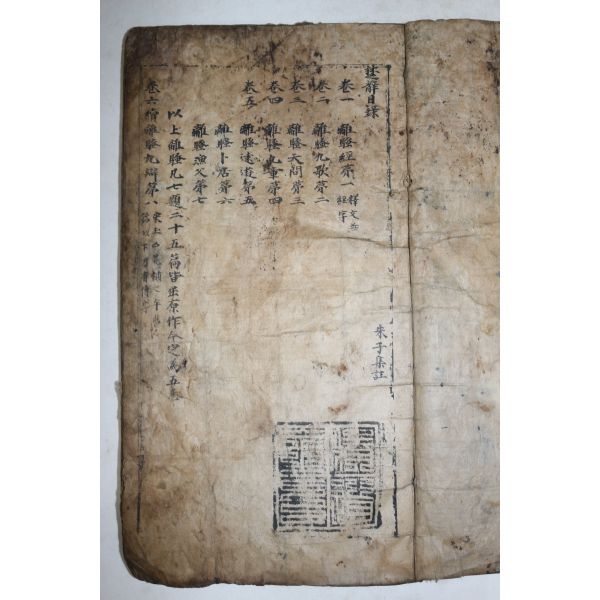 楚辭目錄
朱子集註
卷一 離騷經第一 釋文無經字
卷二 離騷九歌第二
卷三 離騷天問第三
卷四 離騷九章第四
卷五 離騷遠遊第五
離騷卜居第六
離騷漁父第七
以上離騷凡七題二十五篇皆屈原作今定為五卷
卷六續離騷九辯第八